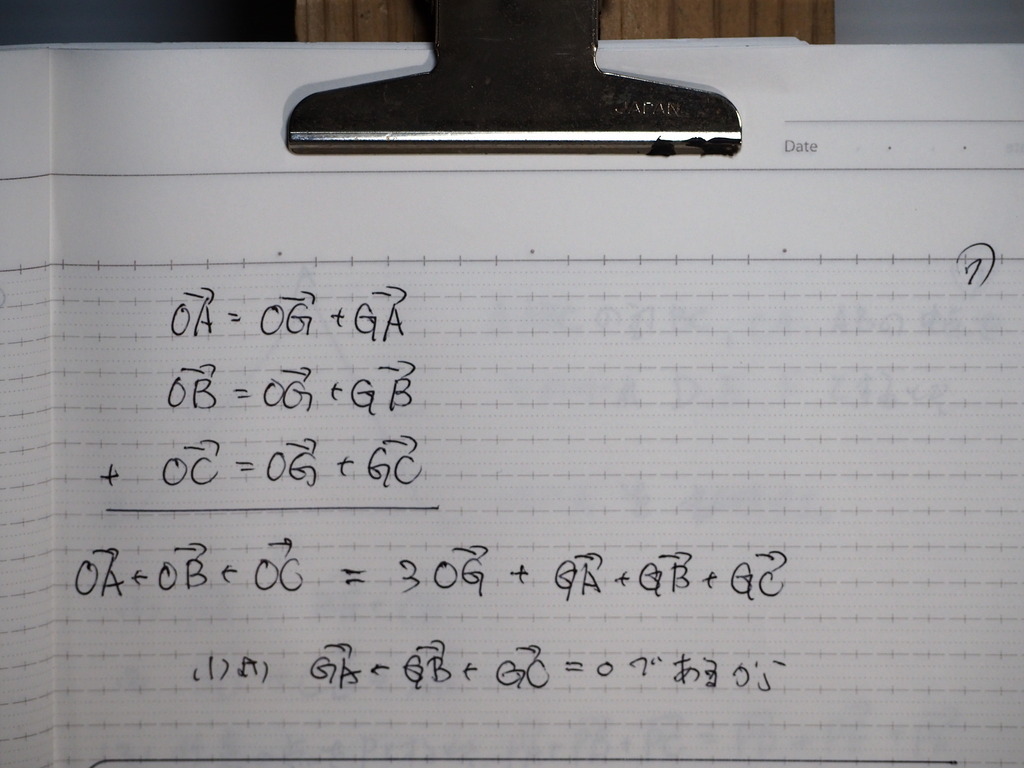 JAPAN
Date
7
OA→ = OG→ + GA→
OB→ = OG→ + GB→
+ OC→ = OG→ + GC→
OA→ + OB→ + OC→ = 3 OG→ + GA→ + GB→ + GC→
(1)より GA→ + GB→ + GC→ = 0 であるから